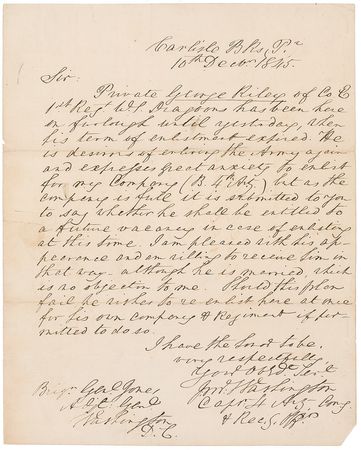 Carlisle Bks, Pa
10th Decbr. 1845.
Sir:
Private George Riley of Co E
1st Regt US Dragoons has been here
on furlough until yesterday, when
his term of enlistment expired. He
is desirous of entering the Army again
and expresses great anxiety to enlist
for my Company (B. 4th Arty.) but as the
company is full it is submitted to you
to say whether he shall be entitled to
a future vacancy in case of enlisting
at this time. I am pleased with his ap-
pearance and am willing to receive him in
that way - although he is married, which
is no objection to me. Should this plan
fail he wishes to re enlist here at once
for his own company & Regiment if per-
mitted to do so.
I have the honor to be,
very respectfully,
Your Obdt. Servt
Washington
Capt. 4 Arty Comg
& Recg. Offr
Brigr. Genl. Jones,
A Genl
Washington
D. C.